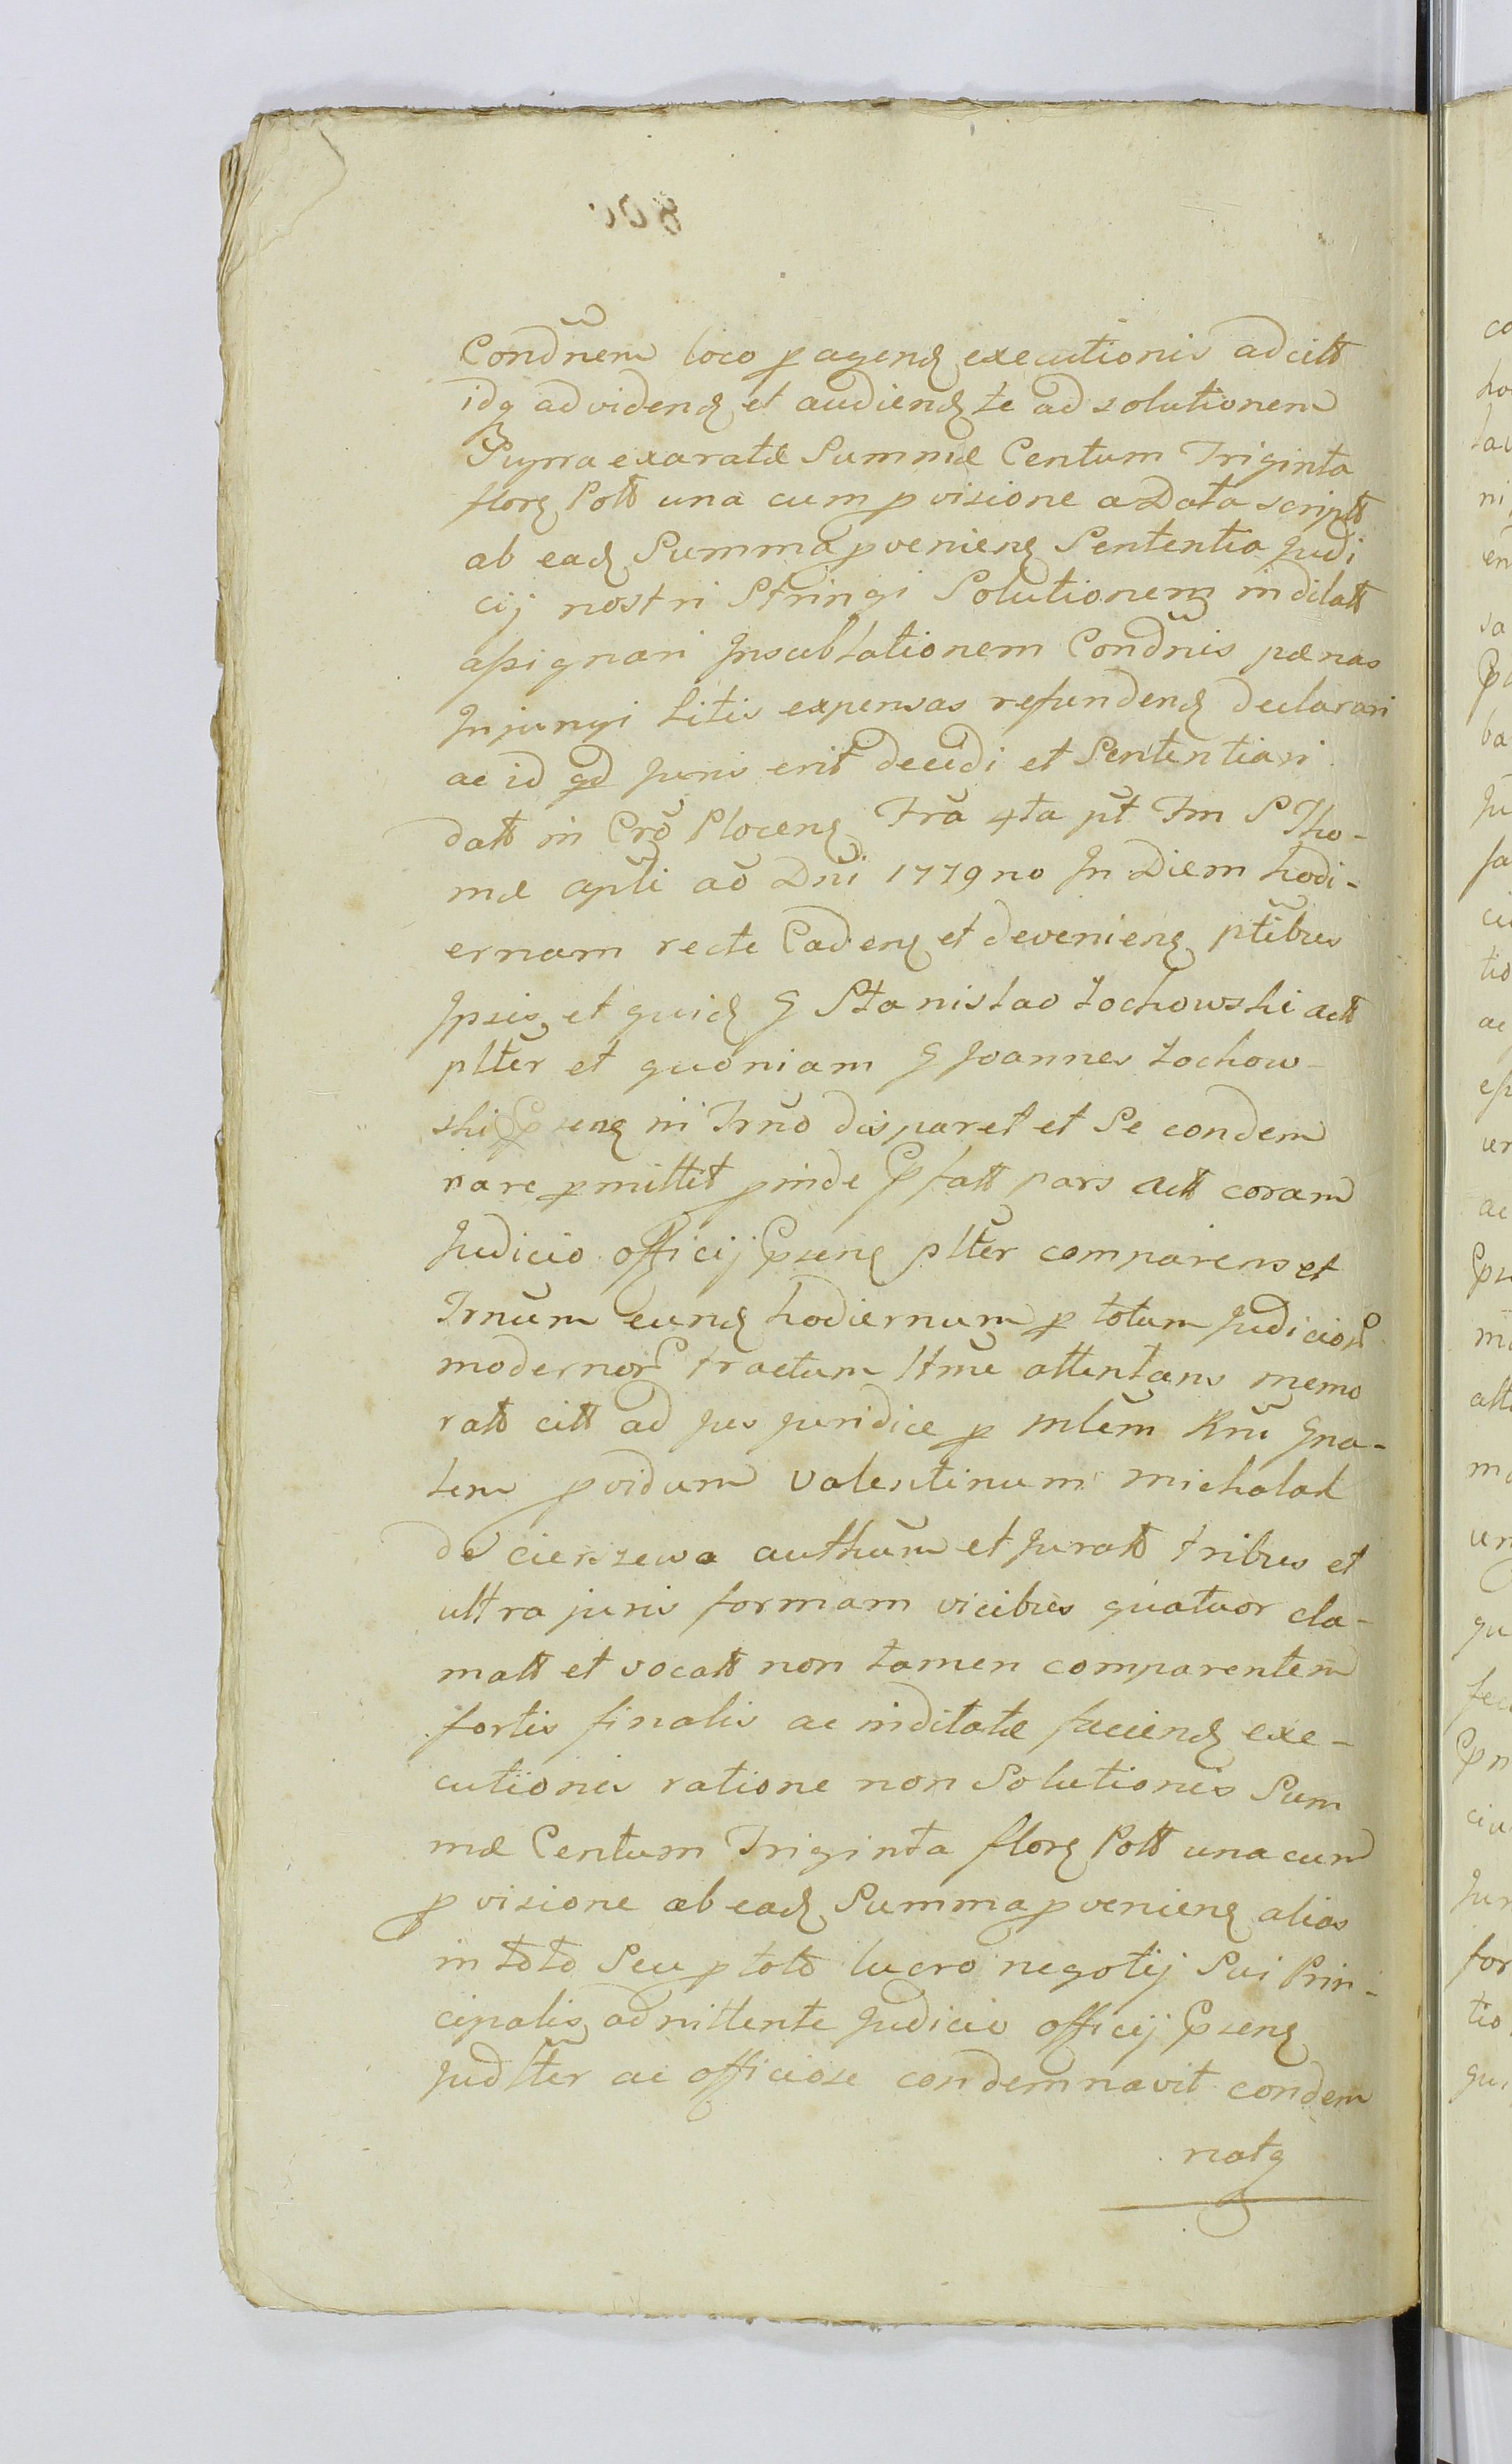 Condn̄em loco p agend executionis ad citt
idq ad videnđ et audienđ te ad solutionem
Supra exaratæ Summæ Centum Triginta
florę Poltt una cum p visione a Data scriptt
ab eadę Summa p venienę Sententia Judi
cij nostri Stringi Solutionem in dilatt
assignari Insublationem Condn̄is pænas
Injungi Litis expensas refundendę declarari
ac id qđ Juris erit decidi et Sententiari
datt in Crō Plocenę Frā 4ta pt̄ Fm S Tho-
mæ apl̄i aō Dn̄i 1779no In Diem hodi-
ernam recte Cadenę et devenienę pt̄ibus
Ipsis, et quidę G Stanislao Łochowski actt
pltēr et quoniam G Joannes Łochow-
ski Pp senę in Trn̄o disparet et Se condem
nare p mittet p inde Pp fatt pars actt coram
Judicio officij Pp senę pltēr comparens et
Trn̄um eundę hodiernum p totum Judicior
modernor tractum ltme attentans memo
ratt citt ad jus juridice p Mlēm Rn̄i Gna-
lem p vidum Valentinum Michalak
de Cierszewa authūm et Juratt tribus et
ultra juris formam vicibus quatuor cla-
matt et vocatt non tamen comparentem
fortis finalis ac inditatæ faciendę exe-
cutionis ratione non Solutionis Sum
mæ Centum Triginta florę Poltt una cum
p visione ab eadę Summa p venienę alias
in toto Seu p toto lucro negotij Sui Prin-
cipalis, admittente Judicio officij Pp senę
Judltēr ac officiose condemnavit condem
natq